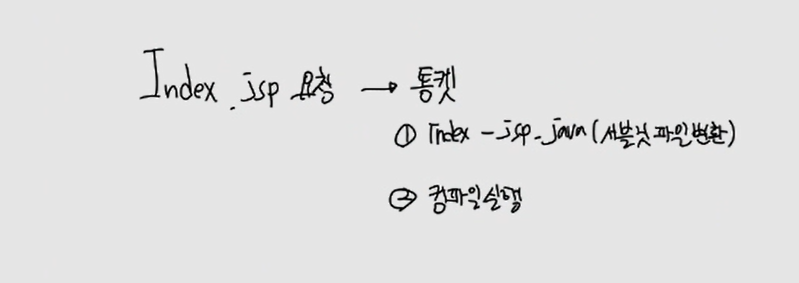 Index.jsp 요청 → 톰켓
① Index-jsp.java (서블릿 파일 변환)
② 컴파일 실행